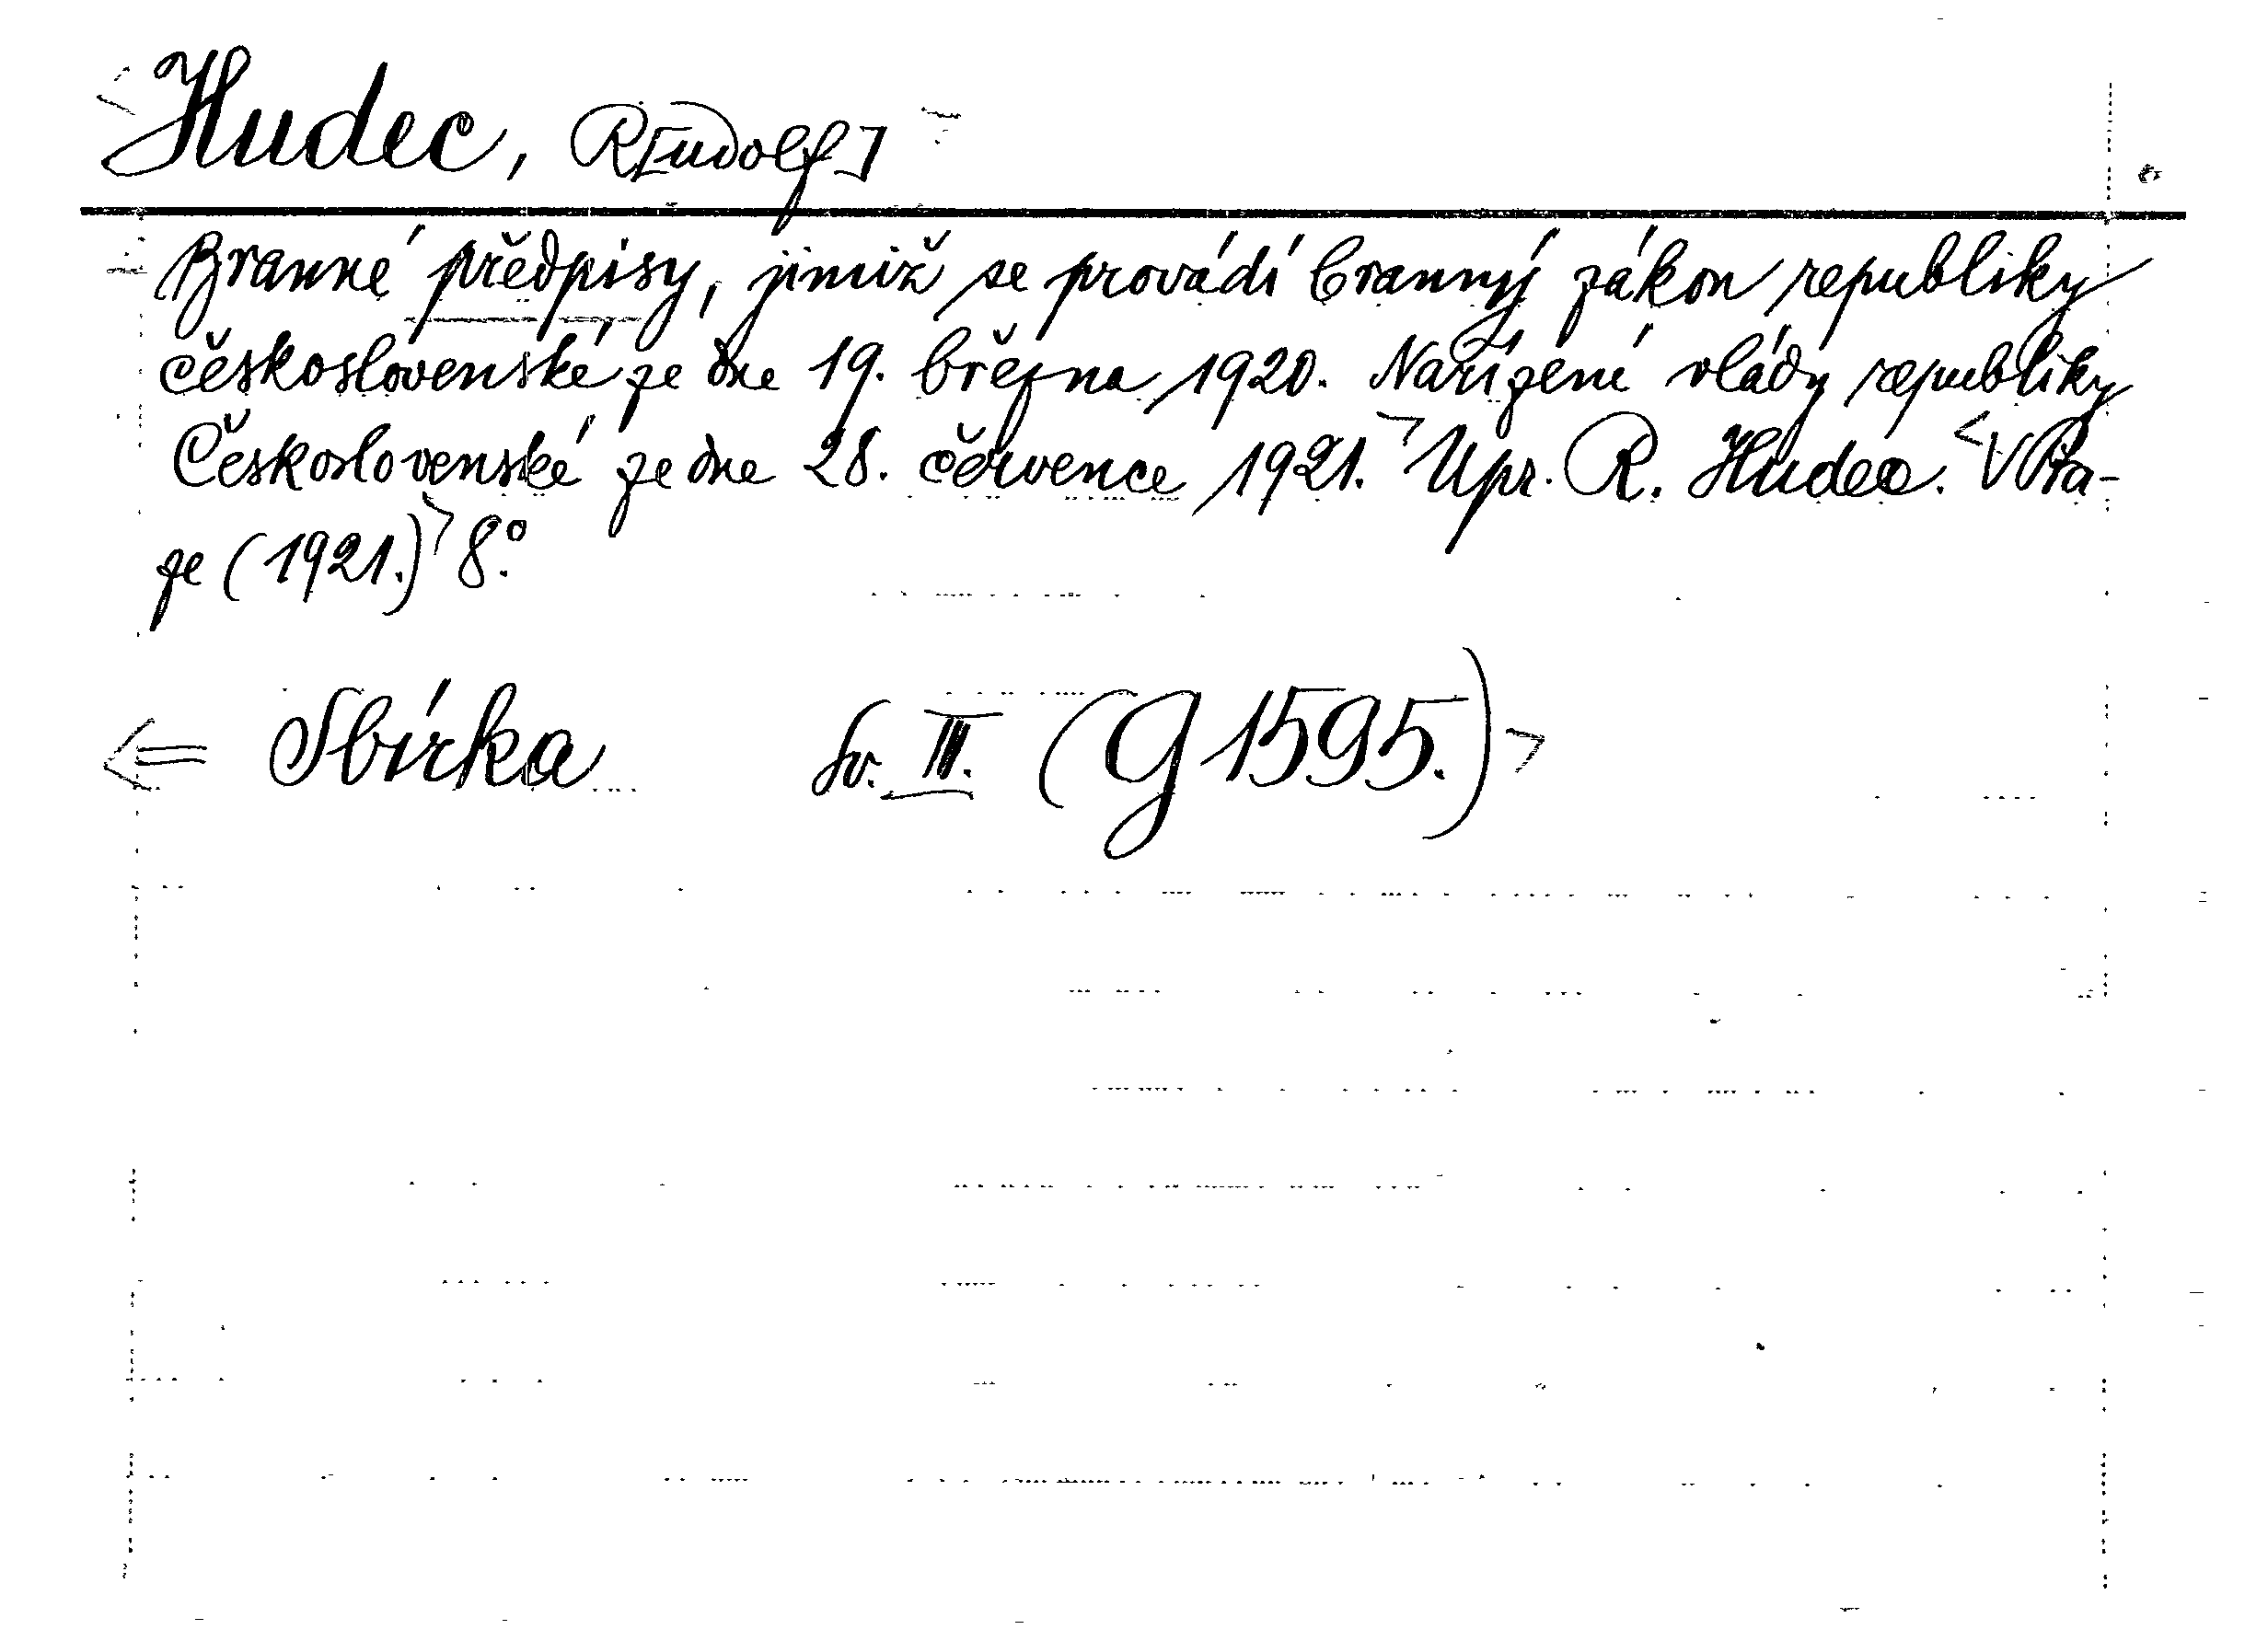 Hudec, R[udolf]
Branné předpisy, jimiž se provádí branný zákon republiky
československé ze dne 19. března 1920. Nařízení vlády republiky
Československé ze dne 28. července 1921. Upr. R. Hudec. V Pra-
ze (1921.) 8°.
= Sbírka sv. III. (G 1595.)